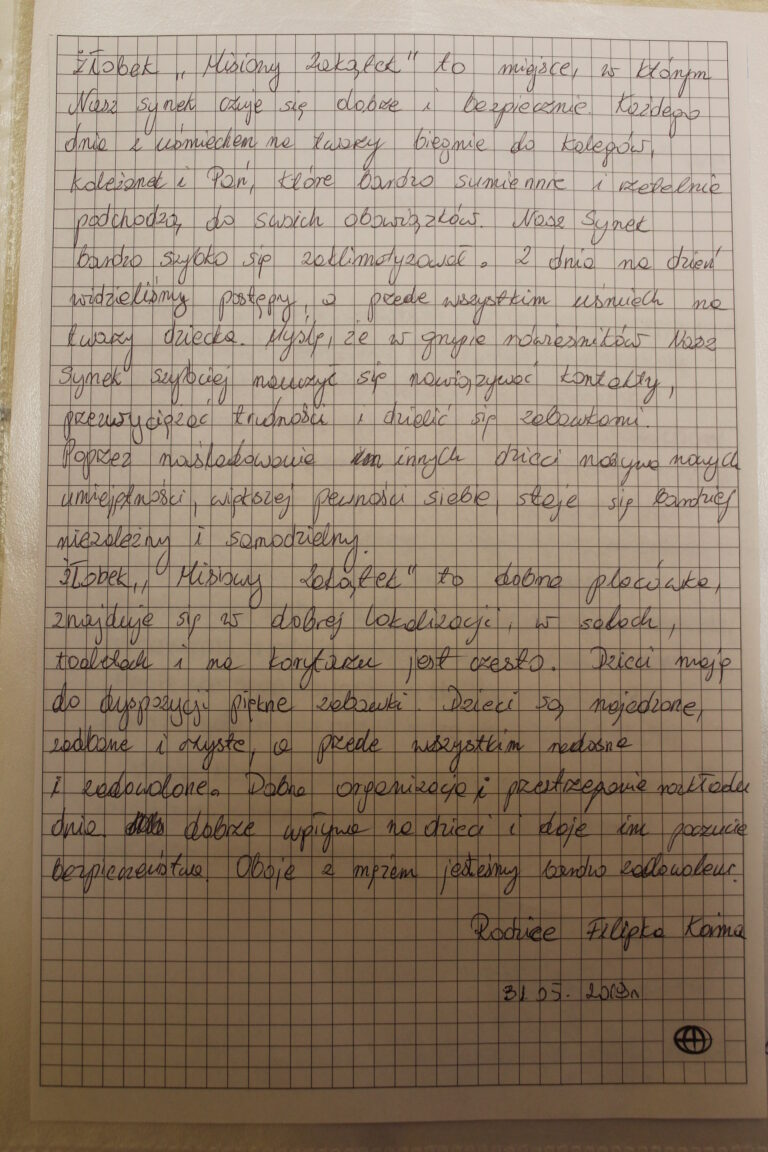 Żłobek „Misiowy Zakątek" to miejsce, w którym
Nasz synek czuje się dobrze i bezpiecznie. Każdego
dnia z uśmiechem na twarzy biegnie do kolegów,
koleżanek i Pań, które bardzo sumiennie i rzetelnie
podchodzą do swoich obowiązków. Nasz Synek
bardzo szybko się zaklimatyzował. Z dnia na dzień
widzieliśmy postępy, a przede wszystkim uśmiech na
twarzy dziecka. Myślę, że w grupie rówieśników Nasz
Synek szybciej nauczył się nawiązywać kontakty,
przezwyciężać trudności i dzielić się zabawkami.
Poprzez naśladowanie innych dzieci nabywa nowych
umiejętności, większej pewności siebie, staje się bardziej
niezależny i samodzielny.
Żłobek „Misiowy Zakątek" to dobra placówka,
znajduje się w dobrej lokalizacji, w salach,
toaletach i na korytarzu jest czysto. Dzieci mają
do dyspozycji piękne zabawki. Dzieci są najedzone,
zadbane i czyste, a przede wszystkim radosne
i zadowolone. Dobra organizacja i przestrzeganie rozkładu
dnia dobrze wpływa na dzieci i daje im poczucie
bezpieczeństwa. Oboje z mężem jesteśmy bardzo zadowoleni.
Rodzice Filipka
31.05.2019r